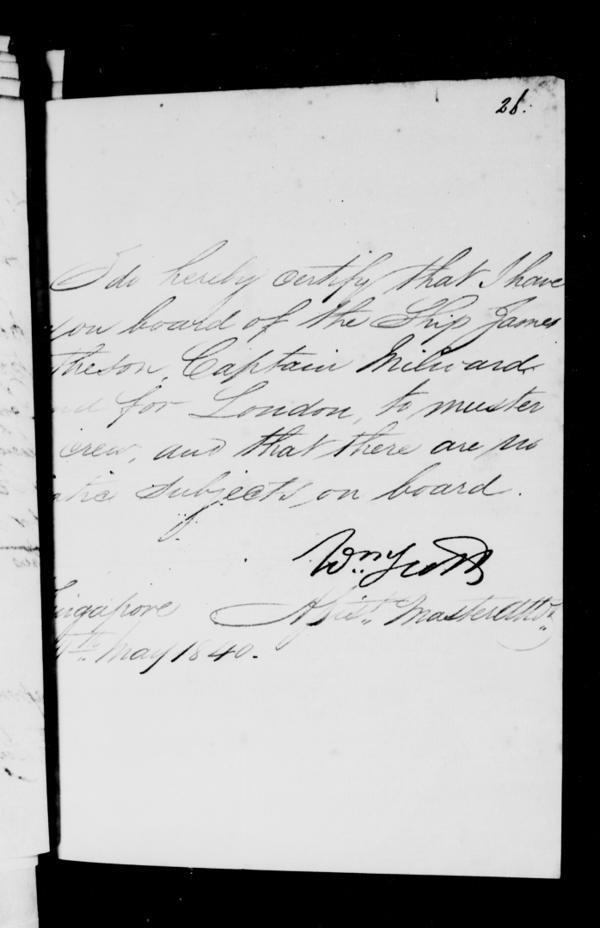 26.
I do hereby certify that I have
on board of the Ship James
theson, Captain Milward
nd for London, to muster
crew, and that there are no
atic Subjects on board.
Wm. Scott
ingapore
Assist. Master Attdt.
th. May 1840.